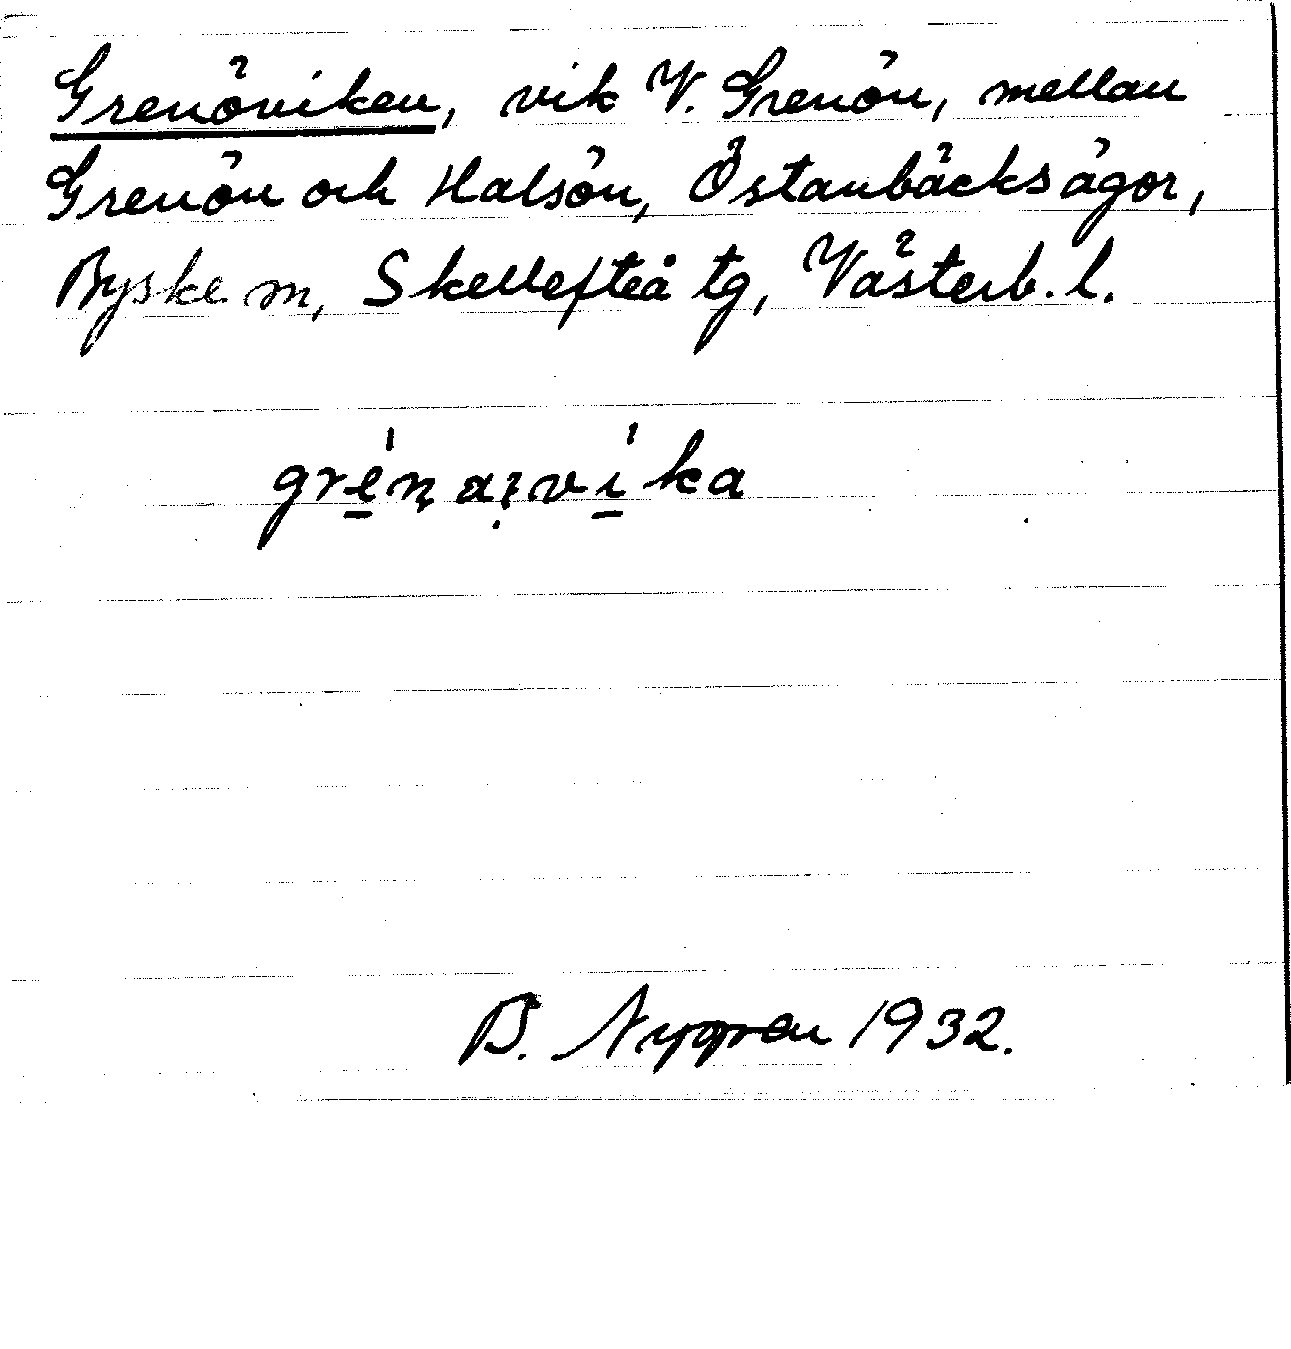 Grenöviken, vik V. Grenön, mellan
Grenön och Halsön, Östanbäcks ägor,
Byske sn, Skellefteå tg, Västerb. l.
B. Nygren 1932.